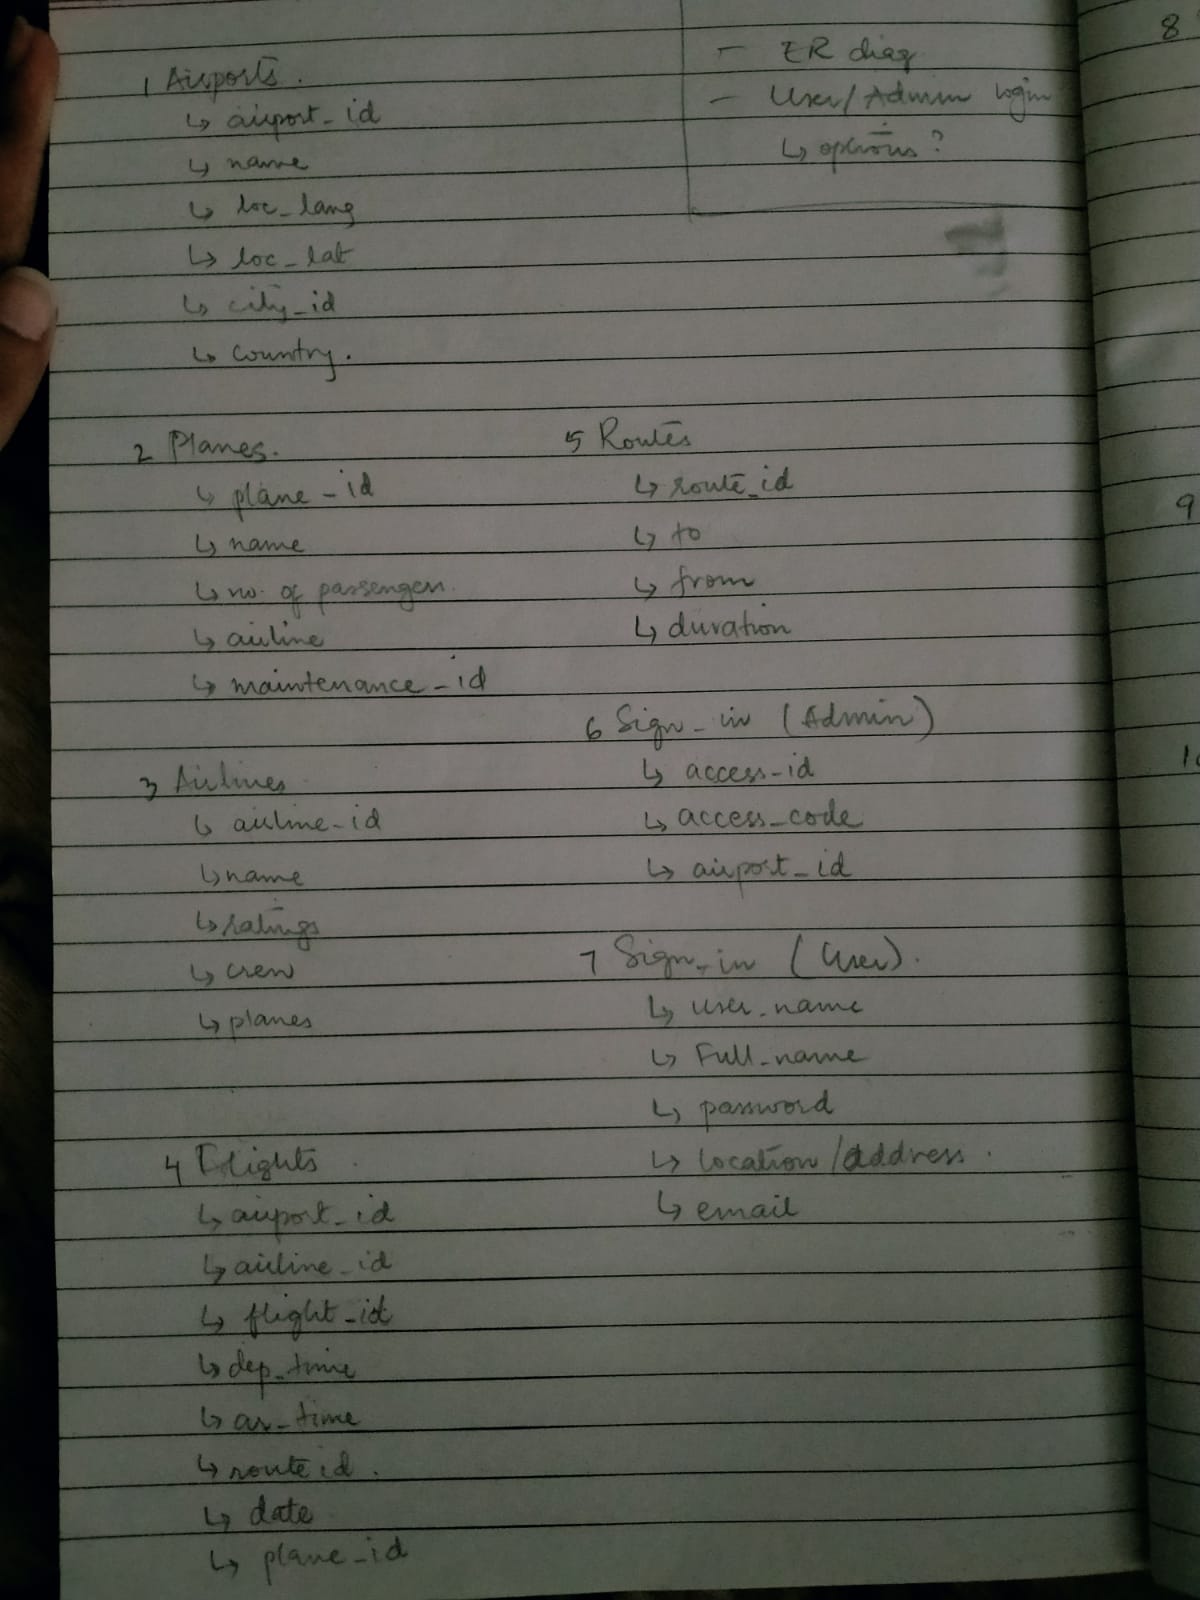 1 Airports.
↳ airport_id
↳ name
↳ loc_lang
↳ loc_lat
↳ city_id
↳ country.
- ER diag
- User/Admin login
↳ options?
2 Planes.
↳ plane_id
↳ name
↳ no. of passengers.
↳ airline
↳ maintenance_id
3 Airlines
↳ airline_id
↳ name
↳ ratings
↳ crew
↳ planes
4 Flights
↳ airport_id
↳ airline_id
↳ flight_id
↳ dep_time
↳ ar_time
↳ route id.
↳ date
↳ plane_id
5 Routes
↳ route_id
↳ to
↳ from
↳ duration
6 Sign_in (Admin)
↳ access_id
↳ access_code
↳ airport_id
7 Sign_in (User).
↳ user_name
↳ Full_name
↳ password
↳ location/address.
↳ email
8
9